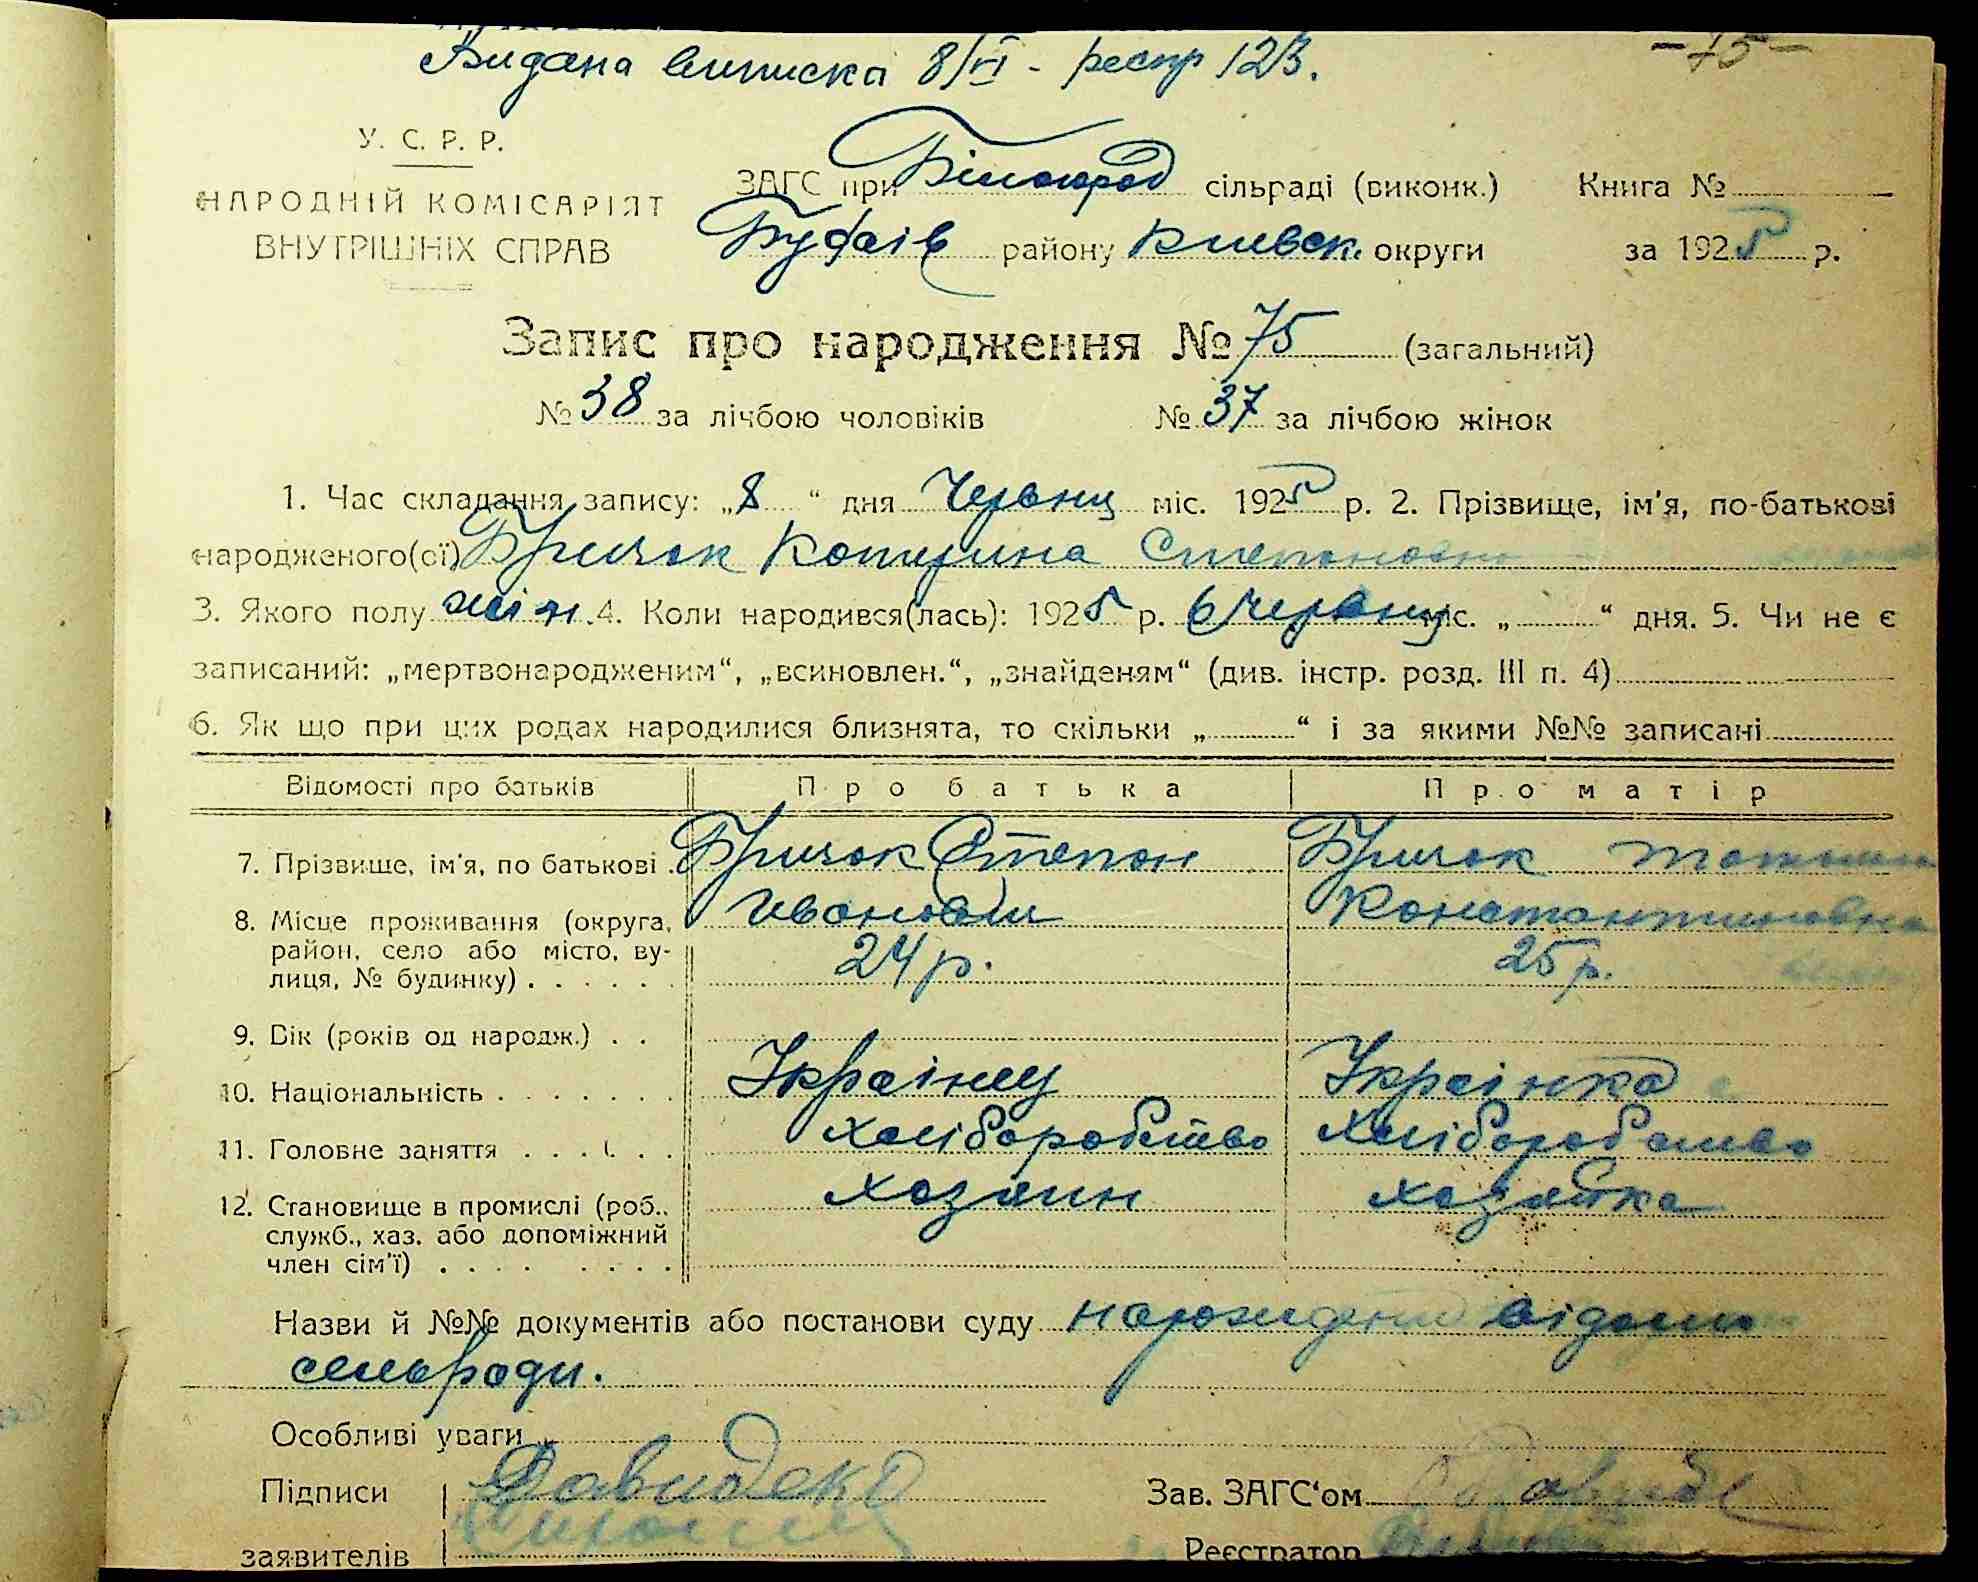 Видана виписка 8/VI - реєстр 123.
-75-
У. С. Р. Р.
НАРОДНІЙ КОМІСАРІЯТ
ВНУТРІШНІХ СПРАВ
ЗАГС при Білогород сільраді (виконк.) Книга №
Будаїв району Киевск. округи за 1925 р.
Запис про народження № 75 (загальний)
№ 38 за лічбою чоловіків № 37 за лічбою жінок
1. Час складання запису: „8“ дня Червня міс. 1925 р. 2. Прізвище, ім'я, по-батькові
народженого(ої) Бричок Катерина Степановна
3. Якого полу жін. 4. Коли народився(лась): 1925 р. 6 Червня міс. „ “ дня. 5. Чи не є
записаний: „мертвонародженим“, „всиновлен.“, „знайденям“ (див. інстр. розд. III п. 4)
6. Як що при цих родах народилися близнята, то скільки „ “ і за якими №№ записані
Відомості про батьків Про батька Про матір
7. Прізвище, ім'я, по батькові . Бричок Степан Бричок
8. Місце проживання (округа, Иванович Константиновна
район, село або місто, ву- 24 р. 25 р.
лиця, № будинку) . . . . . .
9. Вік (років од народж.) . .
10. Національність . . . . . . . Українец Українка
11. Головне заняття . . . . . . хліборобство хліборобство
12. Становище в промислі (роб., хазяин хазяйка
служб., хаз. або допоміжний
член сім'ї) . . . . . . . .
Назви й №№ документів або постанови суду
сельради.
Особливі уваги
Підписи Зав. ЗАГС'ом
заявителів Реєстратор